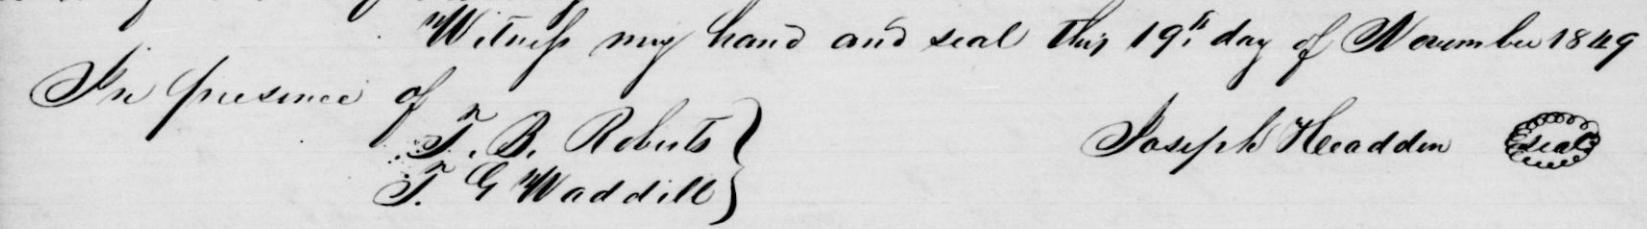 Witness my hand and seal this 19th day of November 1849
In presence of
T. B. Roberts
Joseph Headden seal
T. G Waddill